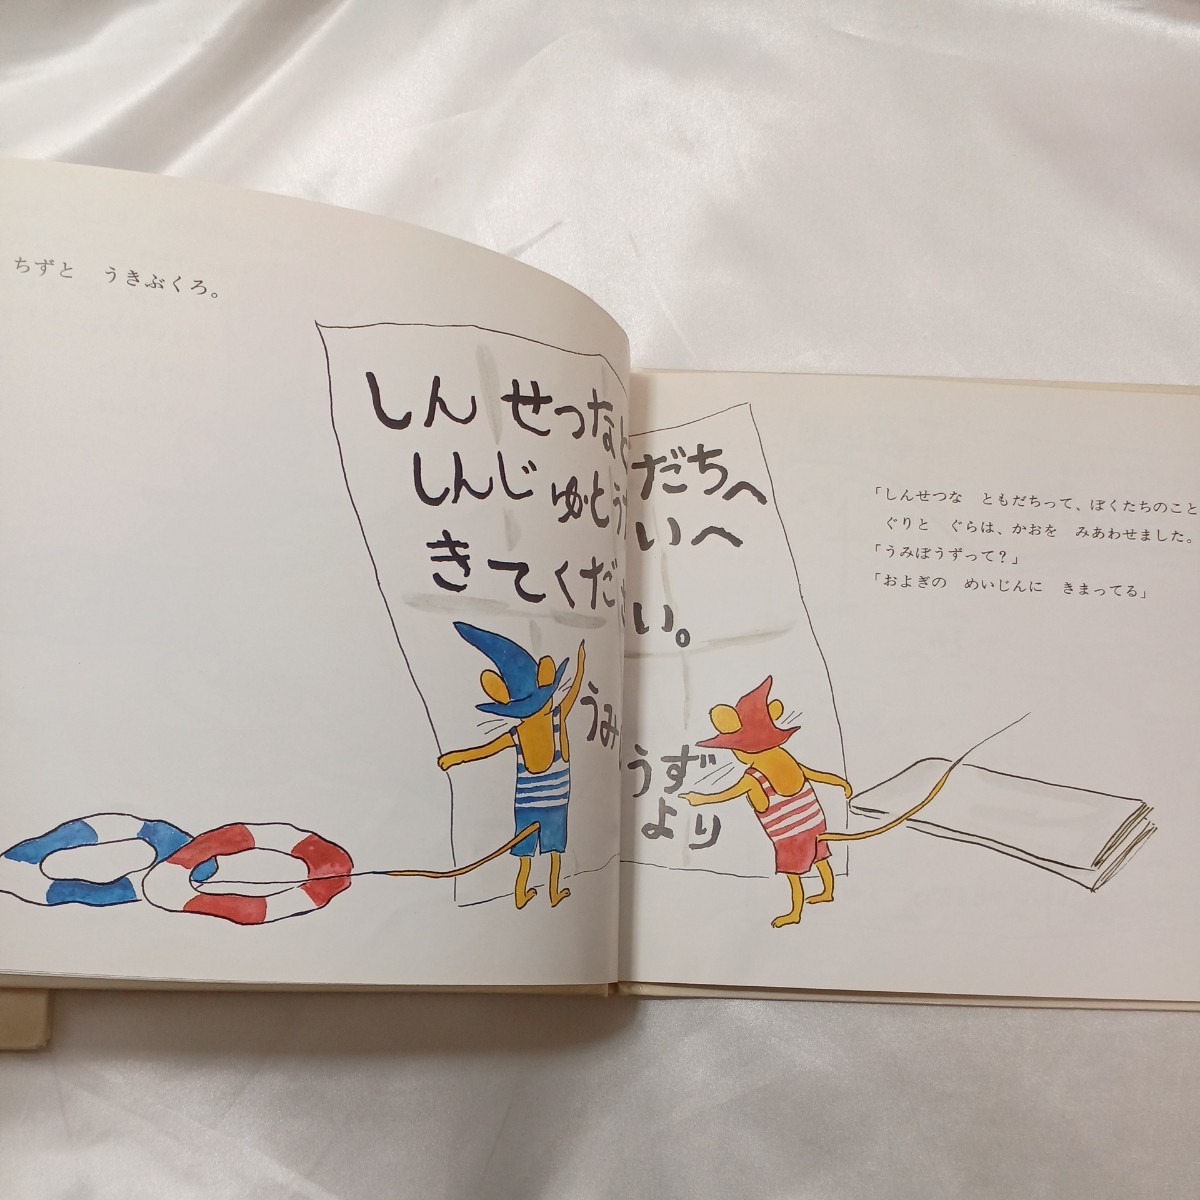 ちずと　うきぶくろ。
しんせつなと だちへ
しんじゅとう いへ
きてください。
うみ うずより
「しんせつな　ともだちって、ぼくたちのこと
ぐりと　ぐらは、かおを　みあわせました。
「うみぼうずって？」
「およぎの　めいじんに　きまってる」